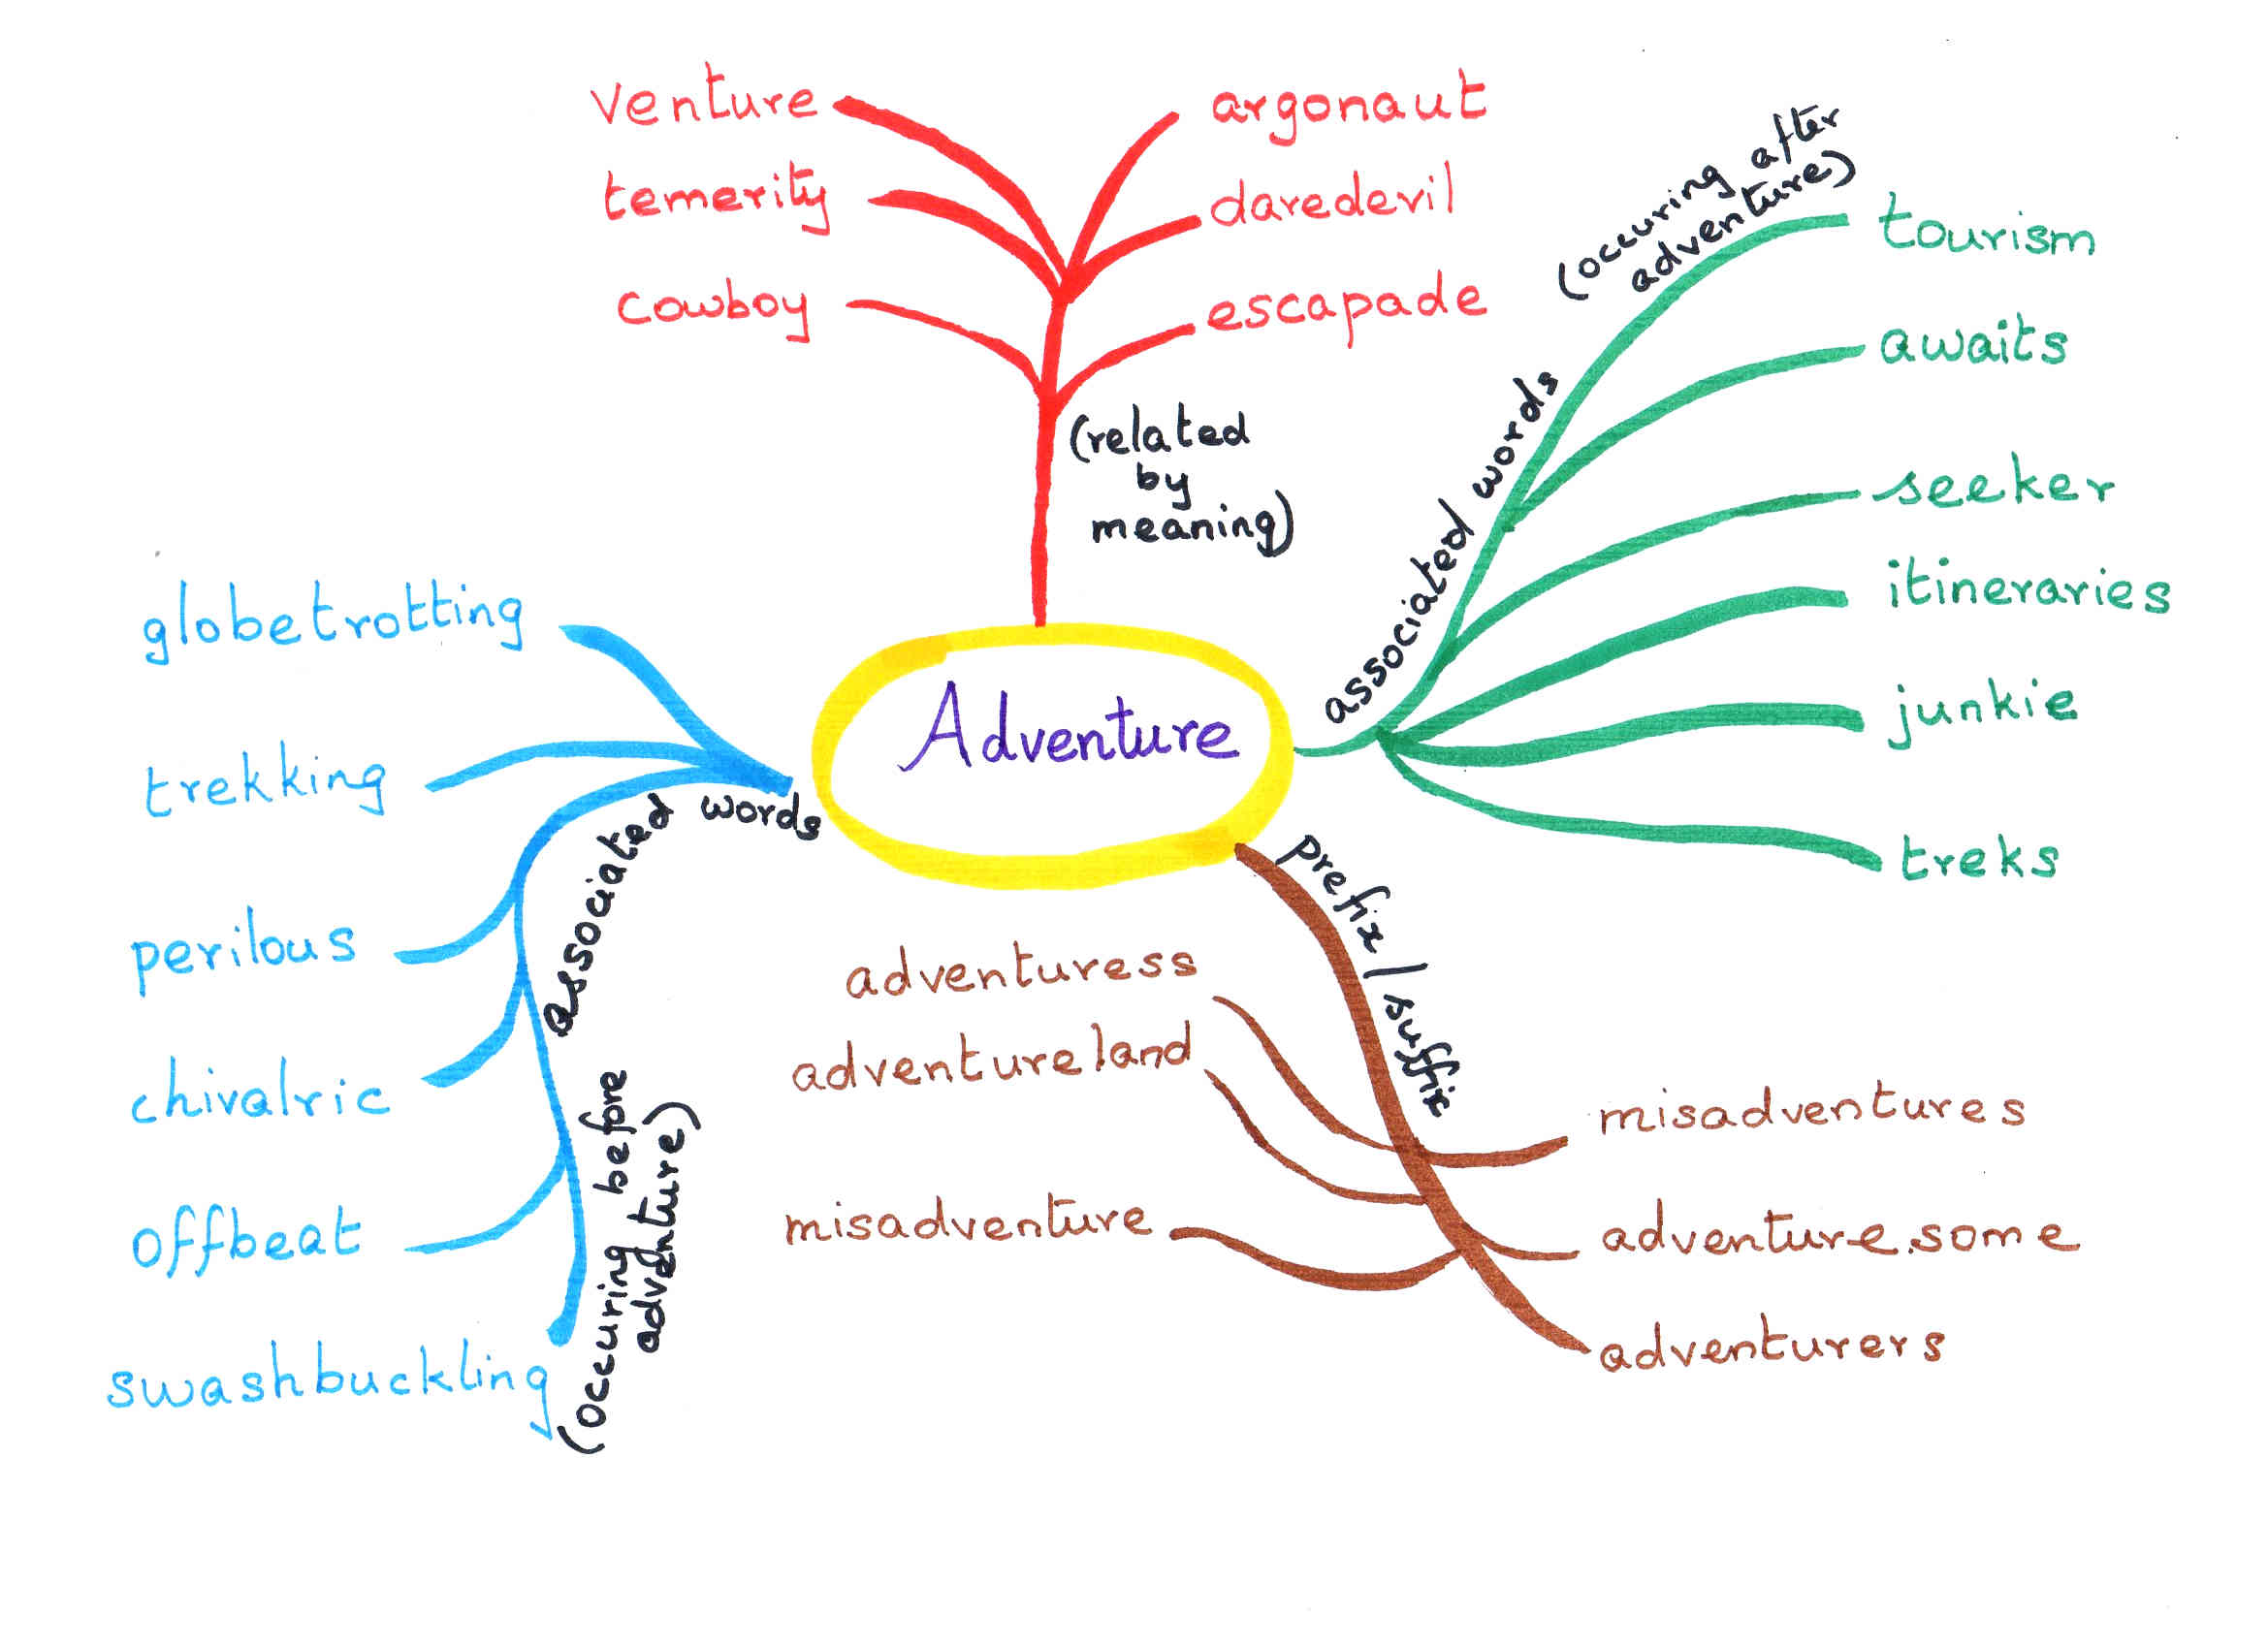 venture
temerity
cowboy
argonaut
daredevil
escapade
(related
by
meaning)
associated words
(occuring after
adventure)
tourism
awaits
seeker
itineraries
junkie
treks
Adventure
globetrotting
trekking
perilous
chivalric
offbeat
swashbuckling
associated words
(occuring before
adventure)
prefix / suffix
adventuress
adventureland
misadventure
misadventures
adventure.some
adventurers